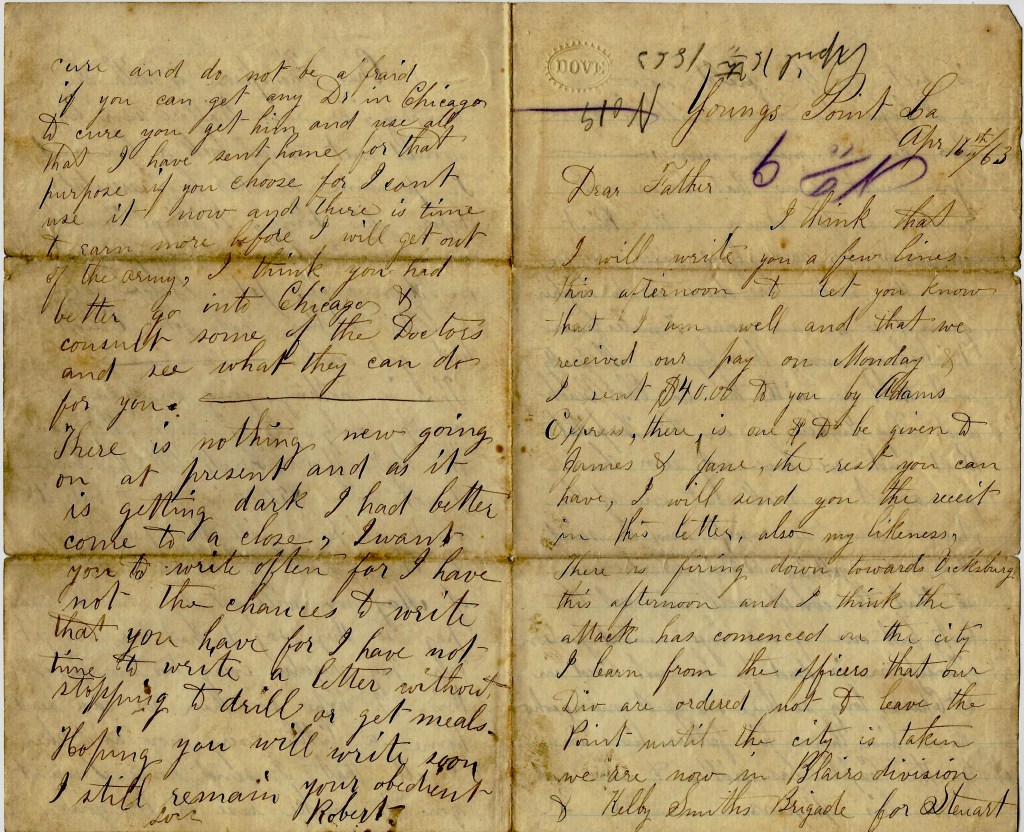 DOVE
April 16th 1863
Youngs Point La
Apr 16th/63
Dear Father
I think that
I will write you a few lines
this afternoon to let you know
that I am well and that we
received our pay on Monday &
I sent $40.00 to you by Adams
Express, there, is one $ to be given to
James & Jane, the rest you can
have, I will send you the receit
in this letter, also my likeness,
There is firing down towards Vicksburg
this afternoon and I think the
attack has comenced on the city
I learn from the officers that our
Div are ordered not to leave the
Point until the city is taken
we are now in Blairs division
& Kelby Smiths Brigade for Steuart
cure and do not be afraid
if you can get any Dr in Chicago
to cure you get him and use all
that I have sent home for that
purpose if you choose for I cant
use it now and there is time
to earn more before I will get out
of the army, I think you had
better go into Chicago &
consult some of the Doctors
and see what they can do
for you.
There is nothing new going
on at present and as it
is getting dark I had better
come to a close, I want
you to write often for I have
not the chances to write
that you have for I have not
time to write a letter without
stopping to drill or get meals.
Hoping you will write soon
I still remain your obedient
Son Robert